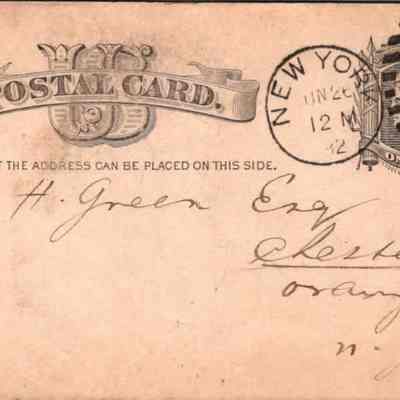 US
POSTAL CARD.
NEW YORK
JUN 26
12 M
82
T THE ADDRESS CAN BE PLACED ON THIS SIDE.
H. Green Esq
Cheste
Orang
N.